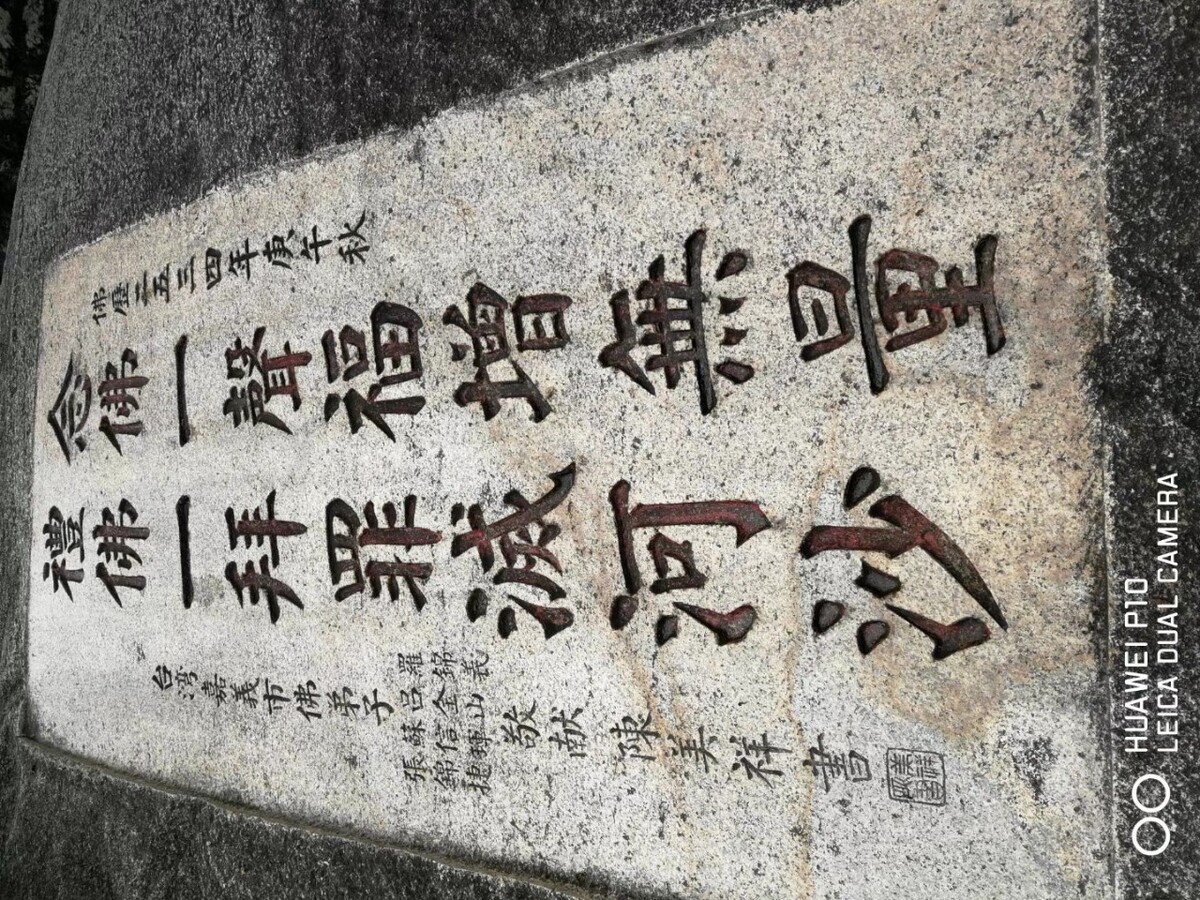 佛曆二五三四年庚午秋
念佛一聲福增無量
禮佛一拜罪滅河沙
台湾嘉義市佛弟子
羅錦義
呂金山
蘇信輝
張錦捷
敬献
陳美祥書
HUAWEI P10
LEICA DUAL CAMERA